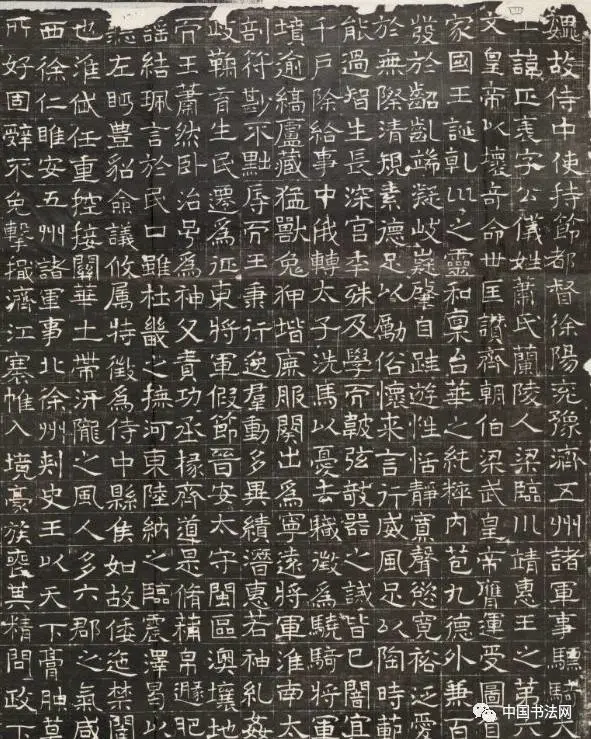 魏故侍中使持節都督徐陽兗豫濟五州諸軍事驃騎大
王諱正表字公儀姓蕭氏蘭陵人梁臨川靖惠王之第六
文皇帝以壞奇命世匡讚齊朝伯梁武皇帝膺運受圖首
家國王誕乾川之靈和稟台華之純粹內苞九德外兼百
發於齠齔端凝岐嶷肇自跬遊性恬靜寡聲慾寬裕泛愛
於無際清規素德足以勵俗懷来言行威風足以陶時範
能過智生長深宮李殊及學而韍弦攲器之誡皆已闇宜
千戶除給事中俄轉太子洗馬以憂去職徵為驍騎將軍
墳逾縞廬藏猛獸兔狎堦廉服闋出為寧遠將軍淮南太
剖符尠不點辱而王秉行逸羣動多異績潛惠若神糺姦
歧鞠育生民遷為近東將軍假節晉安太守閩區澳壤地
而王蕭然卧治号為神父責功丞椽齊道是脩帛遯肥
謠結珮言於民口雖杜畿之撫河東陸納之臨震澤曷以
聽左眄豊貂僉議攸属特徵為侍中縣侯如故倭迤禁闥
也淮伏任重控接關華土帶汧隴之風人多六郡之氣咸
西徐仁睢安五州諸軍事北徐州刾史王以天下膏腴莫
所好固辤不免擊濟江寨帷入境豪族喪其精問政下
中国书法网